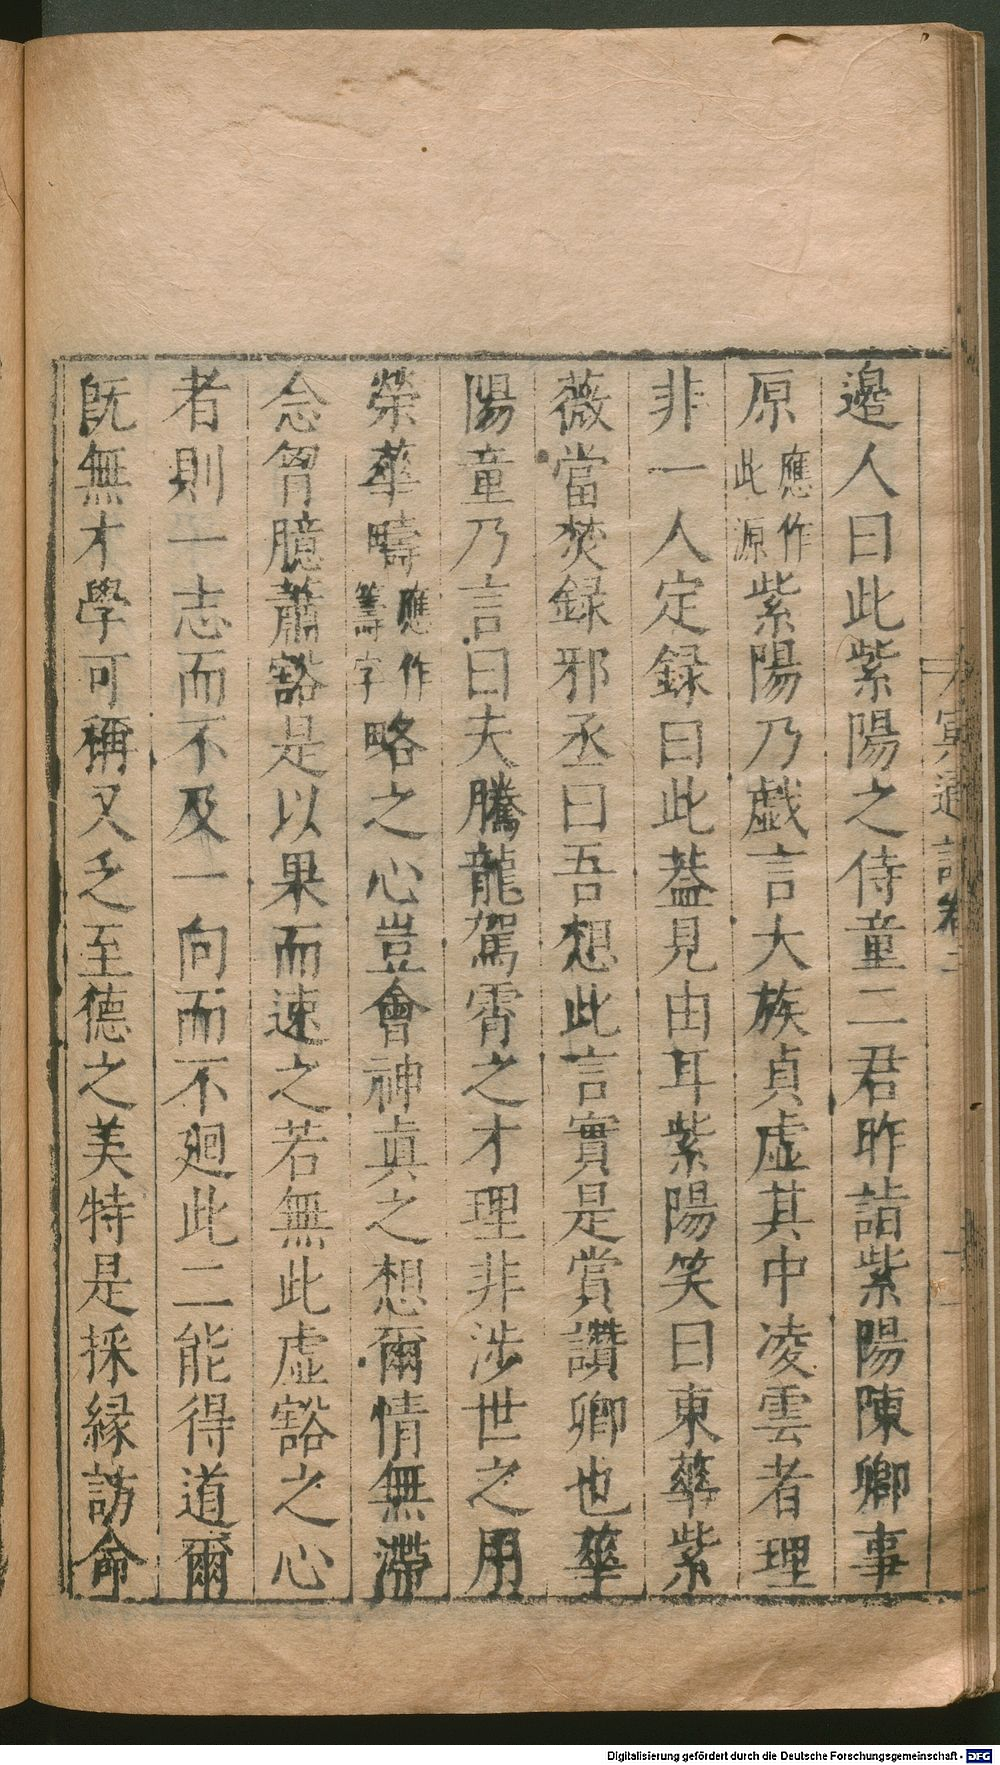 邉人曰此紫陽之侍童二君昨詣紫陽陳卿事
原應作此源紫陽乃戯言大族貞虚其中凌雲者理
非一人定録曰此葢見由耳紫陽笑曰東華紫
薇當焚録邪丞曰吾想此言實是賞讚卿也華
陽童乃言曰夫騰龍駕霄之才理非渉世之用
榮華疇應作籌字略之心豈會神真之想爾情無滯
念胷臆蕭豁是以果而速之若無此虚豁之心
者則平志而不及一向而不廻此二能得道爾
旣無才學可稱又乏至德之美特是採縁訪命
冥通記卷
Digitalisierung gefördert durch die Deutsche Forschungsgemeinschaft - DFG